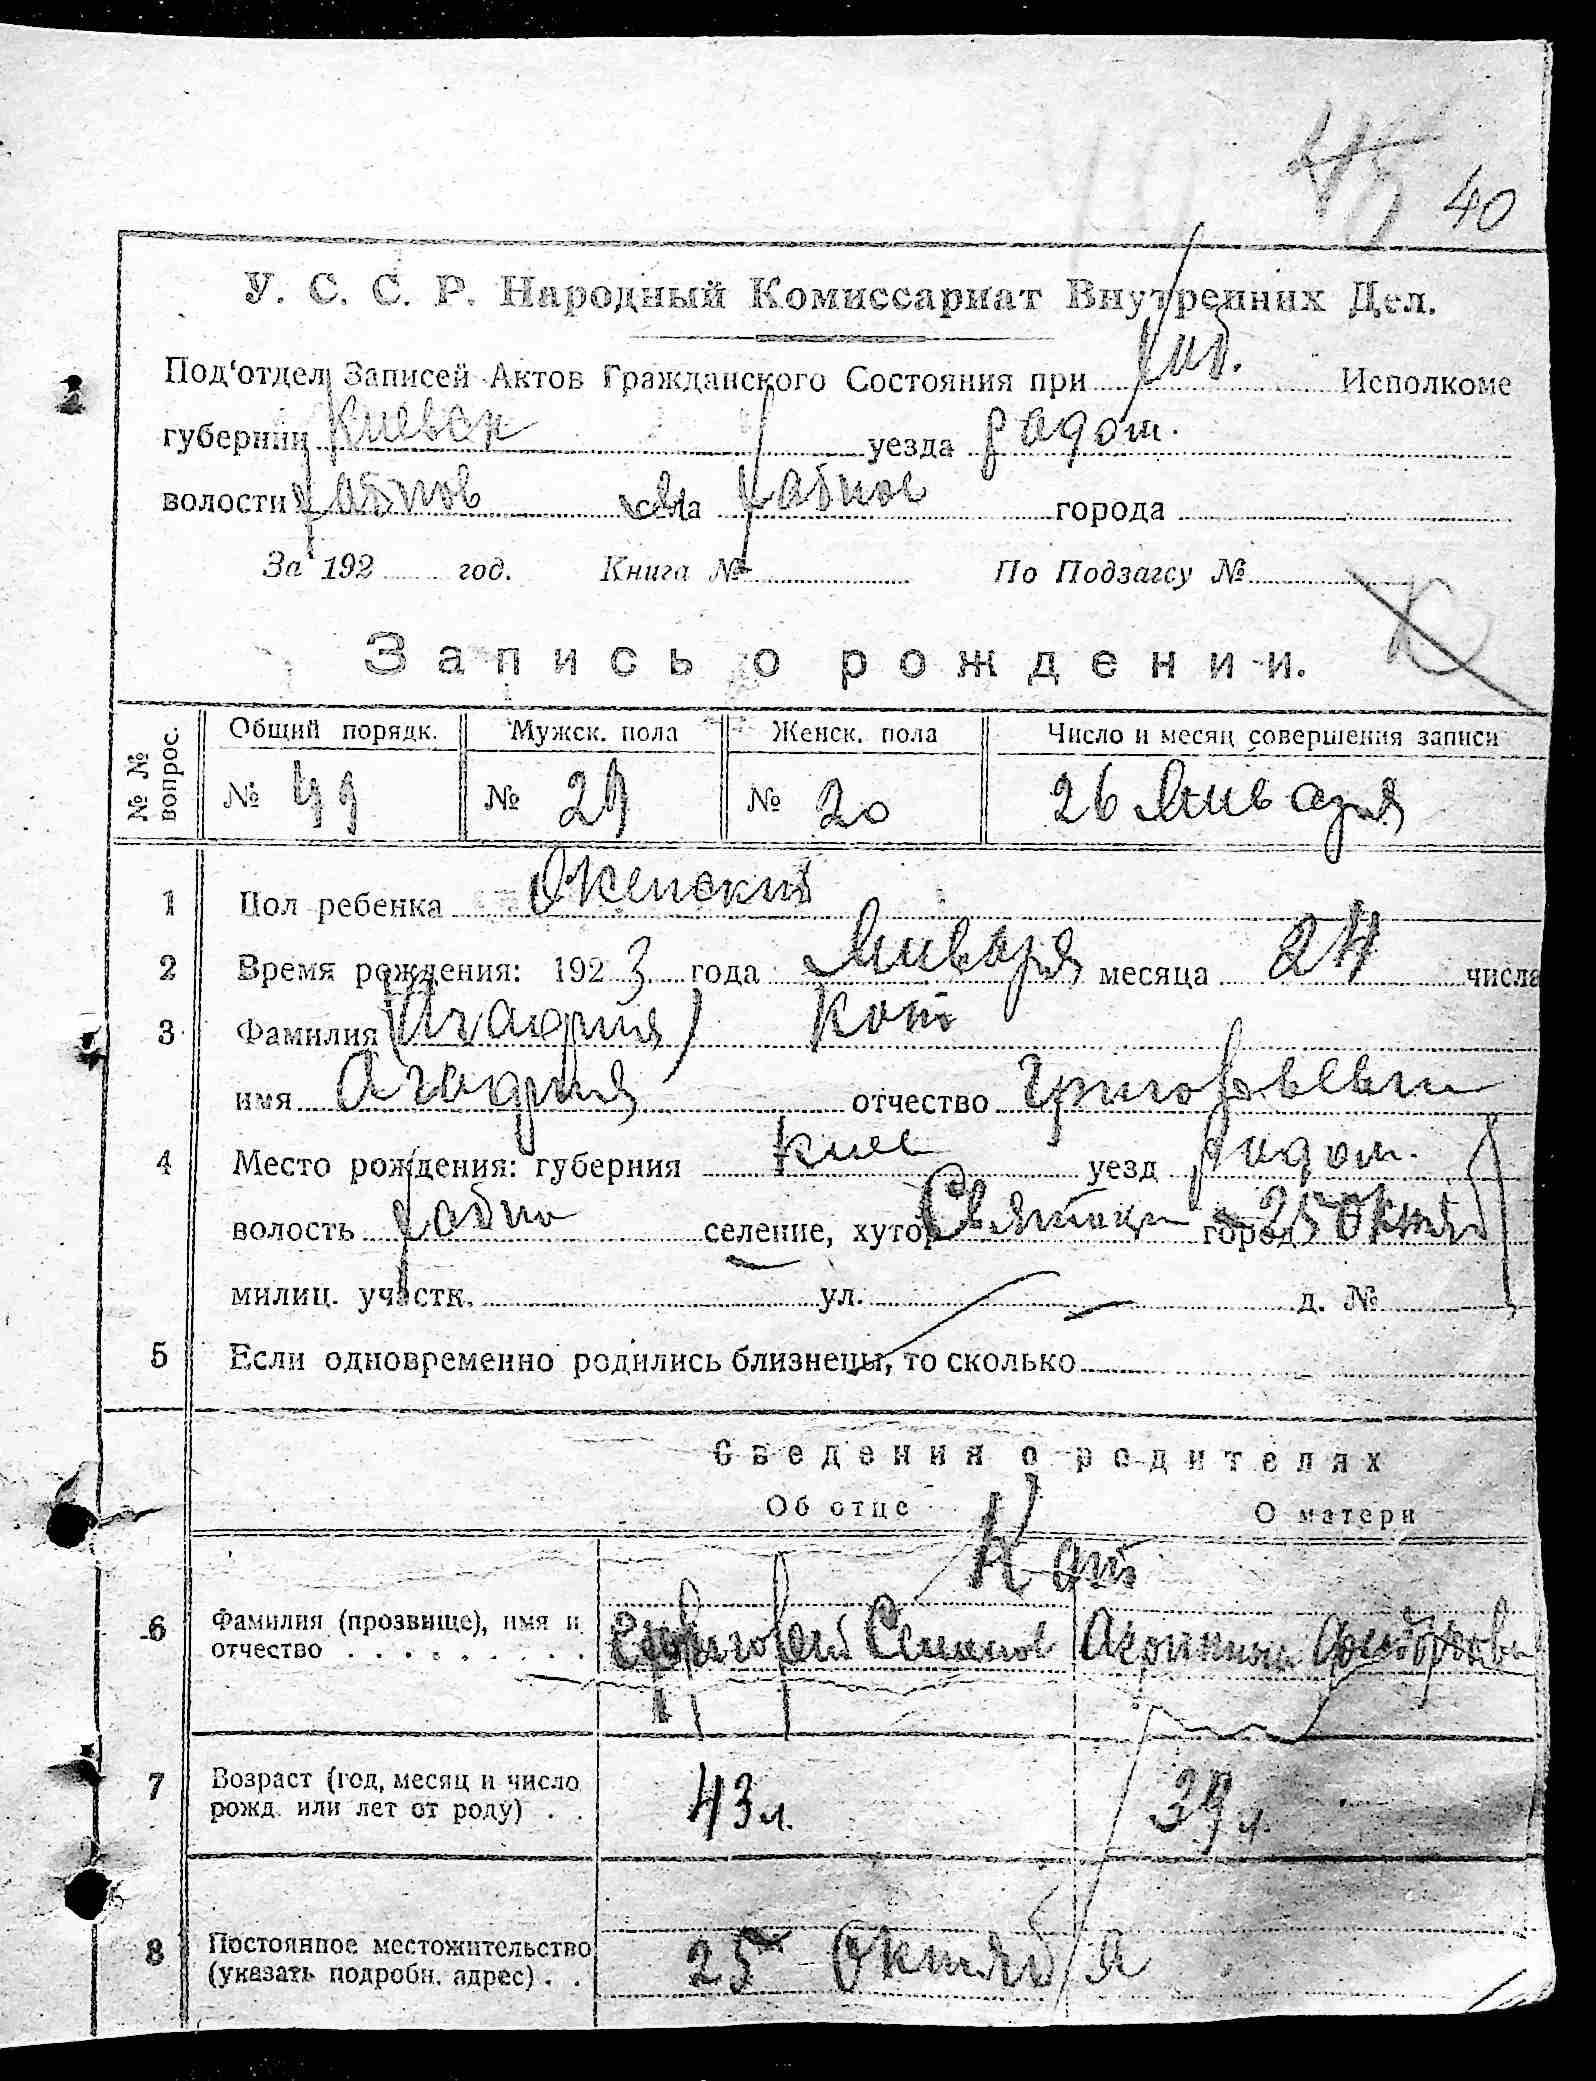 40
У. С. С. Р. Народный Комиссариат Внутренних Дел.
Под‘отдел Записей Актов Гражданского Состояния при Исполкоме
губернии Киевск уезда радом.
волости села города
За 192 год. Книга № По Подзагсу №
Запись о рождении.
№ № вопрос. Общий порядк. Мужск. пола Женск. пола Число и месяц совершения записи
№ 49 № 29 № 20 26 Января
1 Пол ребенка Женский
2 Время рождения: 1923 года Января месяца 24 числа
3 Фамилия (Агафия) Кот
имя Агафия отчество Григорьевна
4 Место рождения: губерния Киев уезд радом.
волость селение, хутор город 25 Октяб
милиц. участк. ул. д. №
5 Если одновременно родились близнецы, то сколько
Сведения о родителях
Об отце О матери
Кот
6 Фамилия (прозвище), имя и
отчество Григорий Семенов
7 Возраст (год, месяц и число
рожд. или лет от роду) 43 л. 39 л.
8 Постоянное местожительство
(указать подробн. адрес) 25 Октября